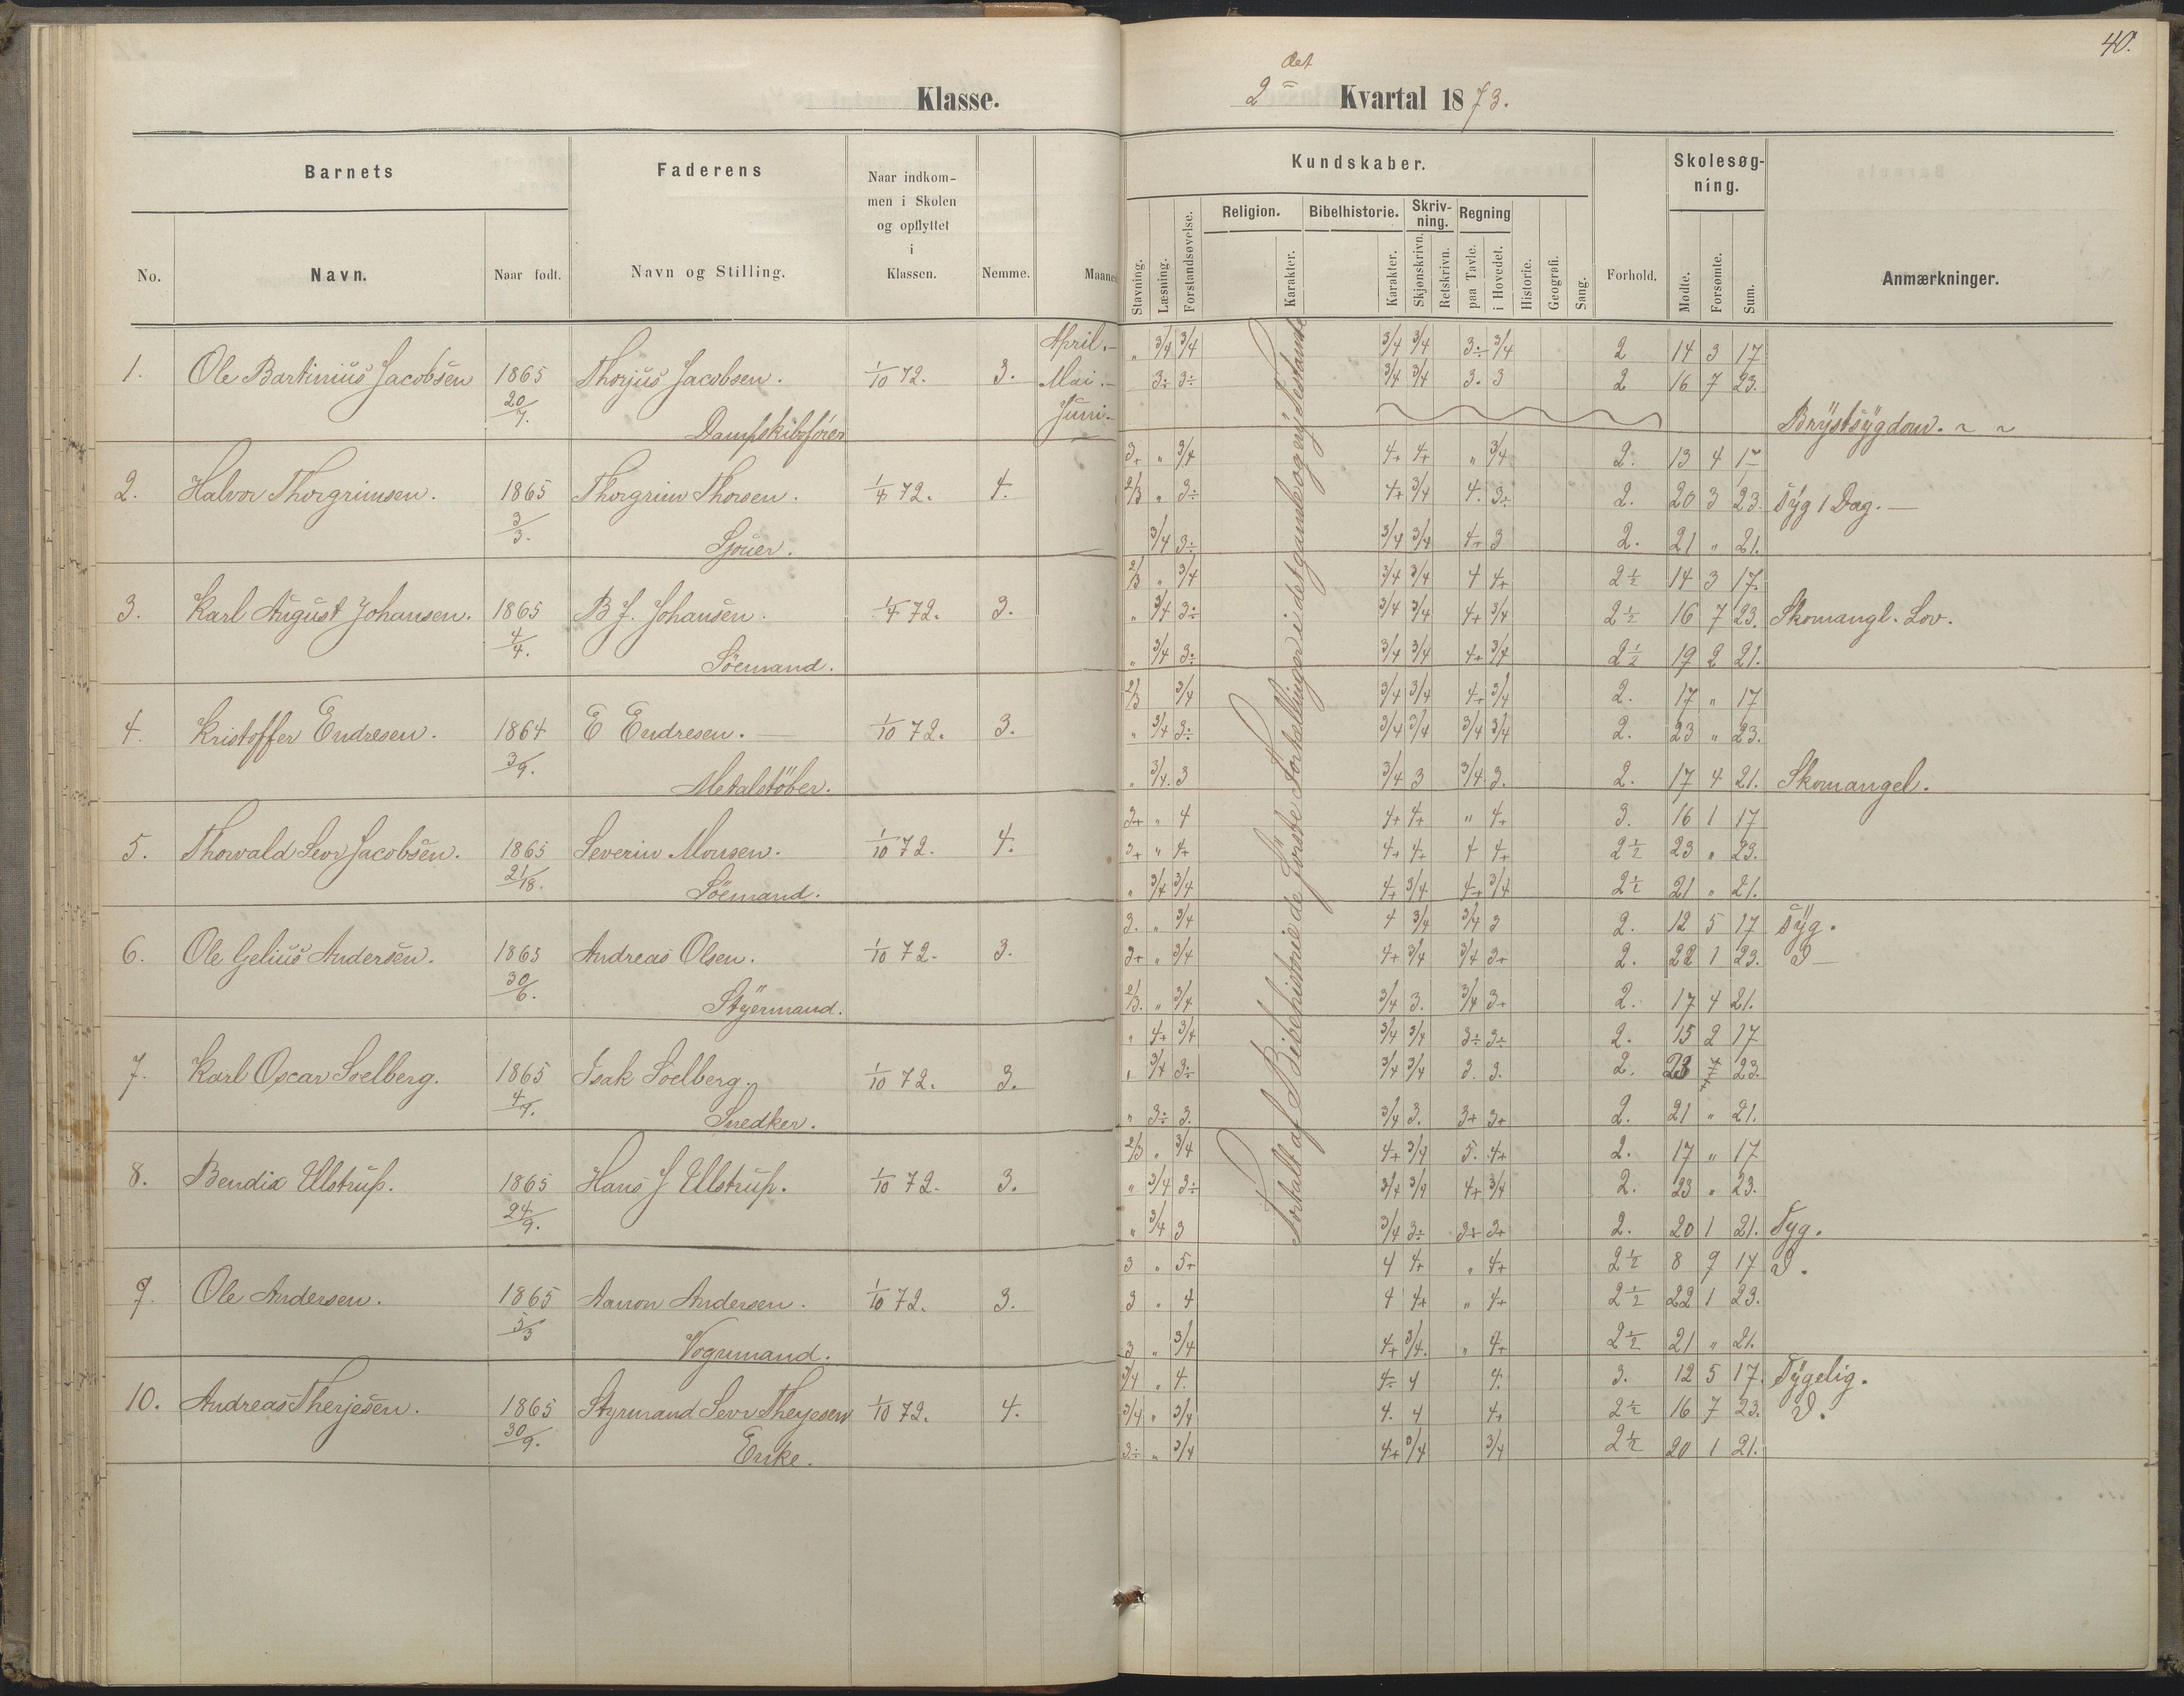 40.
Klasse.
2det Kvartal 1873.
Barnets
Faderens
Naar indkommen i Skolen og opflyttet i Klassen.
Nemme.
Maaned
No.
Navn.
Naar født.
Navn og Stilling.
Kundskaber.
Stavning.
Læsning.
Forstandsøvelse.
Religion.
Karakter.
Bibelhistorie.
Karakter.
Skrivning.
Skjønskrivn.
Retskrivn.
Regning
paa Tavle.
i Hovedet.
Historie.
Geografi.
Sang.
Forhold.
Skolesøgning.
Mødte.
Forsømte.
Sum.
Anmærkninger.
Fortalt af Bibelhistorie de første Fortællinger i det gamle og nye Testamente
April.– „ 3/4 3/4 3/4 3/4 3÷ 3/4 2 14 3 17
1. Ole Bartinius Jacobsen 1865 Thorjus Jacobsen. 1/10 72. 3. Mai.– 3÷ 3÷ 3/4 3/4 3. 3 2 16 7 23.
20/7. Dampskibsfører Juni.– Brystsygdom. ~ ~
3+ „ 3/4 4+ 4+ „ 3/4 2. 13 4 17
2. Halvor Thorgrimsen. 1865 Thorgrim Thorsen. 1/4 72. 4. 2/3 „ 3÷ 4+ 3/4 4. 3÷ 2. 20 3 23. Syg 1 Dag. —
3/3. Sjouer. 3/4 3÷ 3/4 3/4 4+ 3 2. 21 „ 21.
2/3 „ 3/4 3/4 3/4 4 4+ 2½ 14 3 17.
3. Karl August Johansen. 1865 B J. Johansen. 1/4 72. 3. „ 3/4 3÷ 3/4 3/4 4+ 3/4 2½ 16 7 23. Skomangl. Lov.
4/4. Söemand. „ 3/4 3÷ 3/4 3/4 4+ 3/4 2½ 19 2 21.
2/3 3/4 3/4 3/4 4+ 3/4 2. 17 „ 17
4. Kristoffer Endresen. 1864 E Endresen. — 1/10 72. 3. „ 3/4 3÷ 3/4 3/4 3/4 3/4 2. 23 „ 23.
3/9. Metalstöber. „ 3/4. 3 3/4 3 3/4 3. 2. 17 4 21. Skomangel.
3+ „ 4 4+ 4+ „ 4+ 3. 16 1 17
5. Thorvald Sevr Jacobsen. 1865 Severin Monsen. 1/10 72. 4. 3+ „ 4+ 4+ 4+ 4 4+ 2½ 23 „ 23.
Söemand. „ 3/4 3/4 4+ 3/4 4+ 3/4 2½ 21 „ 21.
3. „ 3/4 4 3/4 3/4 3 2. 12 5 17 Syg.
6. Ole Gelius Andersen. 1865 Andreas Olsen. 1/10 72. 3. 3+ „ 3/4 4+ 3/4 3/4 3+ 2. 22 1 23.
30/6. Styermand. 2/3. „ 3/4 3/4 3. 3/4 3+ 2. 17 4 21.
„ 4+ 3/4 3/4 3/4 3÷ 3÷ 2. 15 2 17
7. Karl Oscar Soelberg. 1865 Isak Soelberg. 1/10 72. 3. „ 3/4 3÷ 3/4 3/4 3. 3. 2. 23 23.
Snedker. „ 3÷ 3. 3/4 3. 3+ 3+ 2. 21 „ 21.
2/3 „ 3/4 4+ 3/4 5. 4+ 2. 17 „ 17
8. Bendix Ulstrup. 1865 Hans J Ulstrup. 1/10 72. 3. „ 3/4 3÷ 3/4 3/4 4+ 3/4 2. 23 „ 23.
24/9. „ 3/4 3 3/4 3÷ 3+ 3+ 2. 20 1 21. Syg.
3 „ 5+ 4 4+ „ 4+ 2½ 8 9 17
9. Ole Andersen. 1865 Aanon Andersen. 1/10 72. 3. 3 „ 4 4 4+ „ 4+ 2½ 22 1 23.
5/3 Vognmand. 3 „ 3/4 4+ 3/4. „ 4+ 2½ 21 „ 21.
3/4 „ 4. 4÷ 4 4. 3. 12 5 17. Sygelig.
10. Andreas Therjesen. 1865 Styrmand Sevr Therjesens 1/10 72. 4. 3/4 „ 3/4 4. 4 4+ 2½ 16 7 23.
30/9. Enke. 3÷ „ 3/4 4+ 3/4 3/4 2½ 20 1 21.